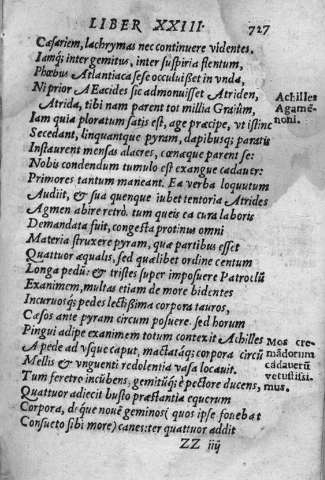 LIBER XXIII. 727
Cæsariem, lachrymas nec continuere videntes.
Iamq; inter gemitus, inter suspiria flentum,
Phœbus Atlantiaca sese occuluisset in vnda,
Ni prior AEacides sic admonuisset Atriden,
Atrida, tibi nam parent tot millia Graiûm,
Achilles Agamẽ-
noni.
Iam quia ploratum satis est, age præcipe, vt istinc
Secedant, linquantque pyram, dapibusq; paratis
Instaurent mensas alacres, cœnaque parent se:
Nobis condendum tumulo est exangue cadauer:
Primores tantum maneant. Ea verba loquutum
Audiit, & sua quenque iubet tentoria Atrides
Agmen abire retrò. tum queis ea cura laboris
Demandata fuit, congesta protinus omni
Materia struxere pyram, quæ partibus esset
Quattuor æqualis, sed qualibet ordine centum
Longa pedũ: & tristes super imposuere Patroclũ
Exanimem, multas etiam de more bidentes
Incuruosq; pedes lectissima corpora tauros,
Cæsos ante pyram circum posuere. sed horum
Pingui adipe exanimem totum contexit Achilles
A pede ad vsque caput, mactatáq; corpora circũ
Mellis & vnguenti redolentia vasa locauit.
Mos cre-
mādorum
cadauerũ
vetustissi-
mus.
Tum feretro incũbens, gemitúq; è pectore ducens,
Quattuor adiecit busto præstantia equorum
Corpora, déque nouē geminos (quos ipse fouebat
Consueto sibi more) canes: ter quattuor addit
ZZ iiij